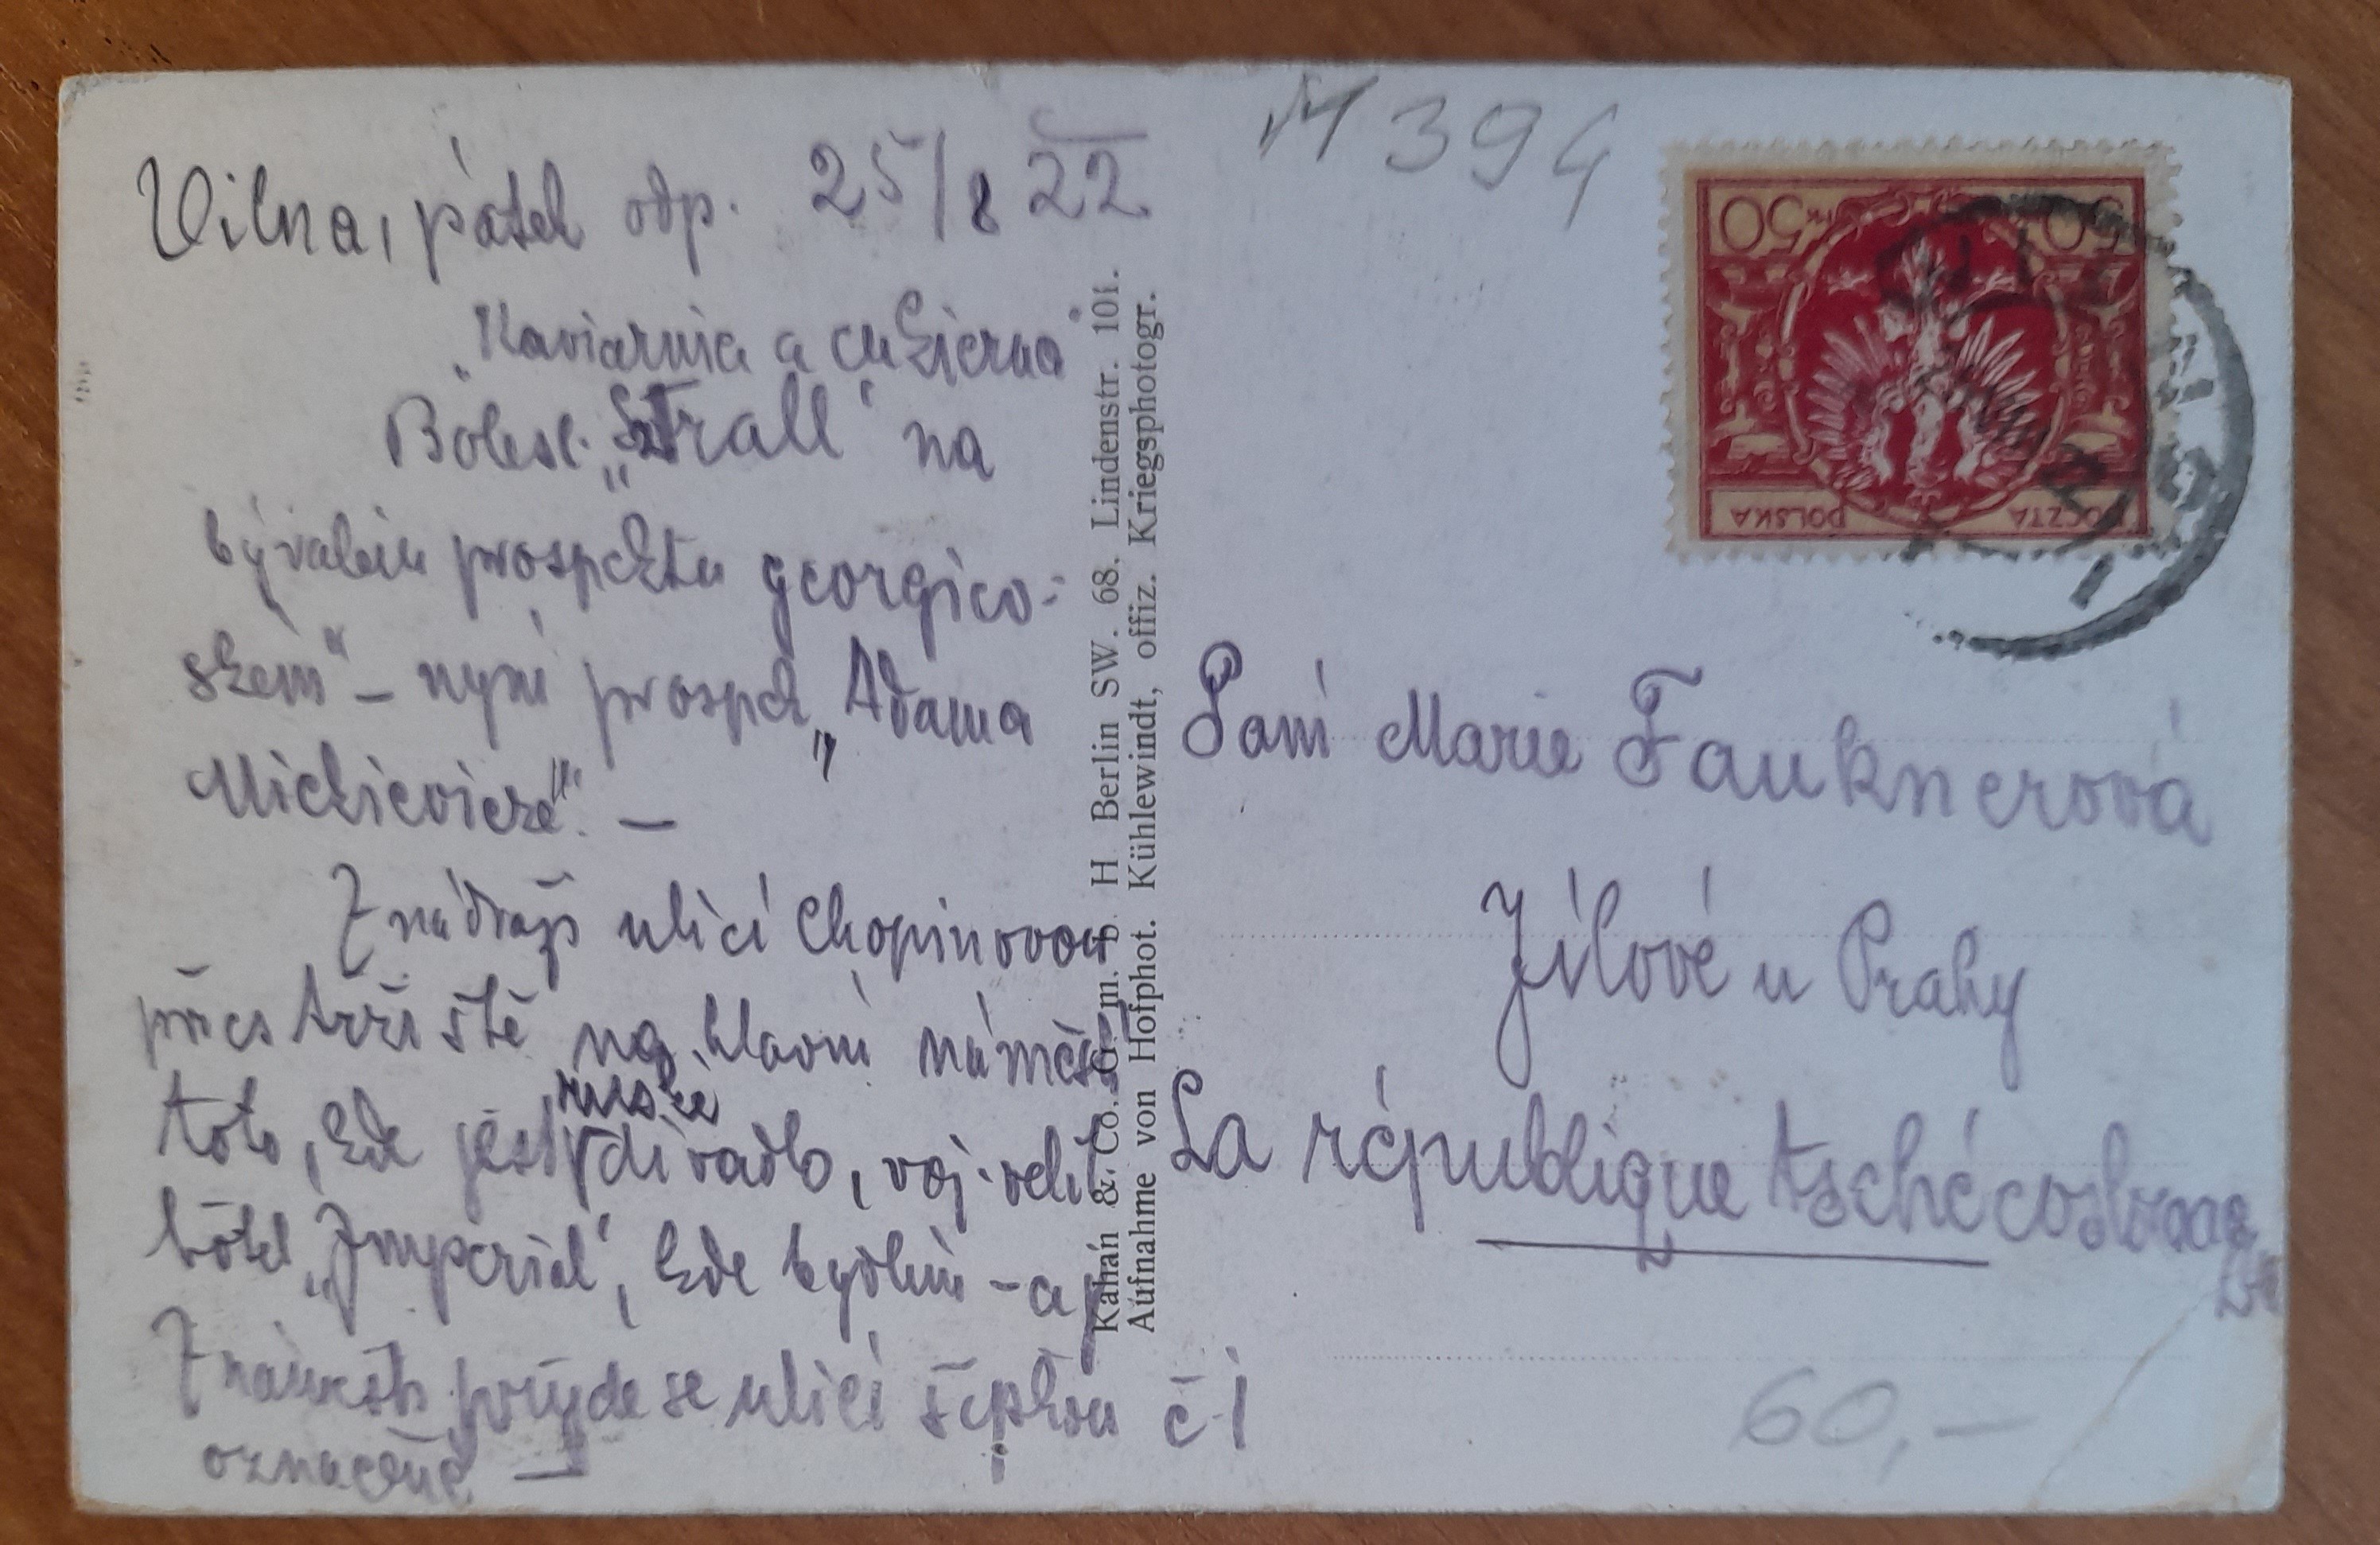 Vilna, pátek odp. 25/8 22
"Kaviarnia a cukierna"
Bolesl. "Sztrall" na
bývalém prospektu georgiev-
ském" – nyní prospek. "Adama
Mickievicze". –
Z nádraží ulicí Chopinovou
přes tržiště na hlavní náměs-
tí, kde jest ruské divadlo, voj. velit.
hôtel "Imperial", kde bydlím – a
Z náměstí přijde se ulicí šipkou č. 1
označené –
Kahan & Co. G. m. b. H Berlin SW. 68. Lindenstr. 101.
Aufnahme von Hofphot. Kühlewindt, offiz. Kriegsphotogr.
M 394
50 MK 50
POCZTA POLSKA
Paní Marie Fauknerová
Jílové u Prahy
La république tschécoslovaque
60,—